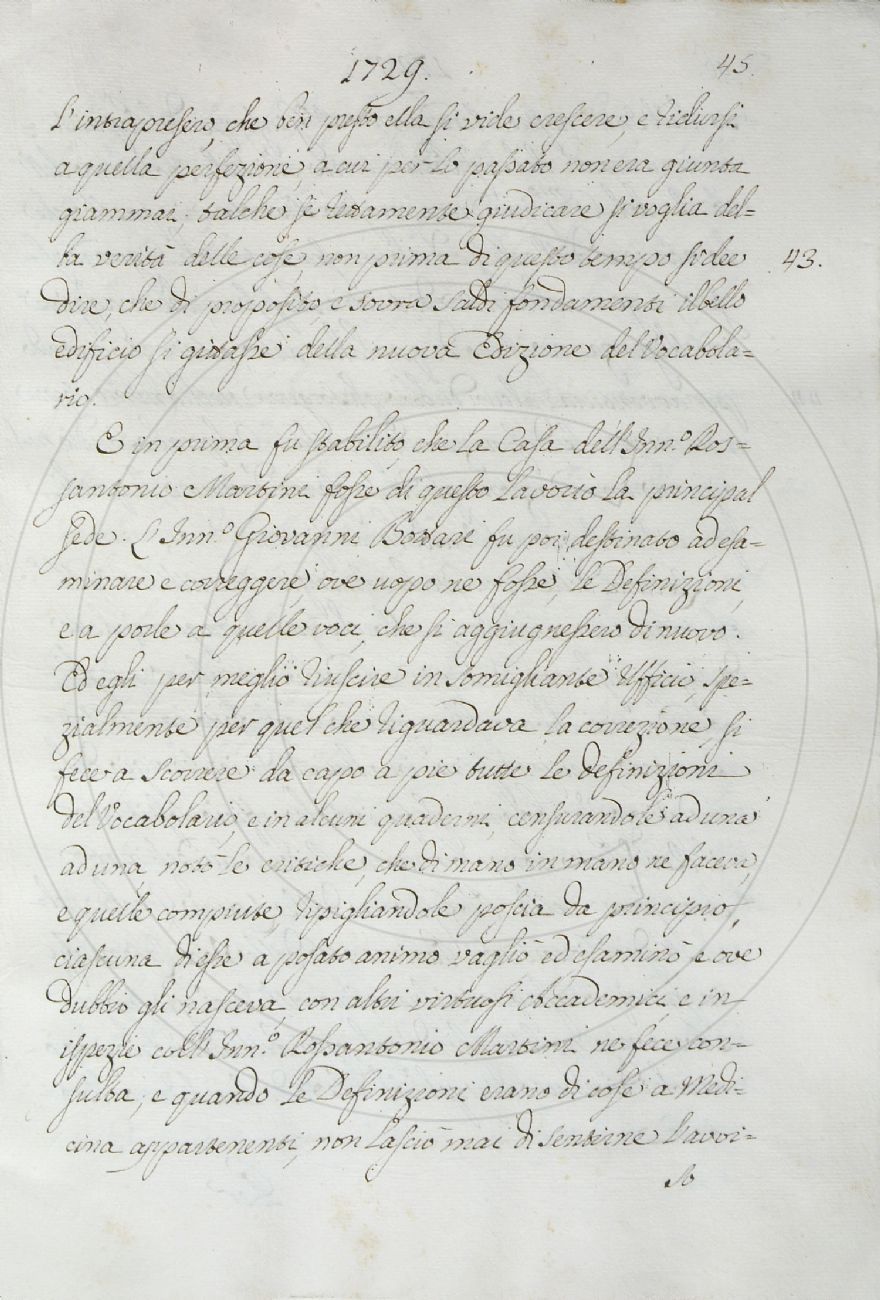 1729.
45.
l'intrapresero, che ben presto ella si vide crescere, e ridursi
a quella perfezione, a cui per lo passato non era giunta
giammai; talchè se rettamente giudicare si voglia del=
la verità delle cose, non prima di questo tempo si dee
43.
dire, che di proposito e sovra saldi fondamenti il bello
edificio si gittasse della nuova Edizione del Vocabola=
rio.
E in prima fu stabilito, che la Casa dell'Inn.º Ros=
santonio Martini fosse di questo lavorio la principal
sede. L'Inn.º Giovanni Bottari fu poi destinato ad esa=
minare e correggere, ove uopo ne fosse, le Definizioni,
e a porle a quelle voci, che si aggiugnessero di nuovo.
Ed egli per meglio riuscire in somigliante Ufficio, spe=
zialmente per quel che riguardava la correzione, si
fece a scorrere da capo a piè tutte le definizioni
del Vocabolario, e in alcuni quaderni, censurandole ad una
ad una, notò le critiche, che di mano in mano ne faceva,
e quelle compiute, ripigliandole poscia da principio,
ciascuna di esse a posato animo vagliò ed esaminò e ove
dubbio gli nasceva, con altri virtuosi Accademici, e in
ispezie coll'Inn.º Rossantonio Martini ne fece con=
sulta, e quando le Definizioni erano di cose a Medi=
cina appartenenti, non lasciò mai di sentirne l'avvi=
so